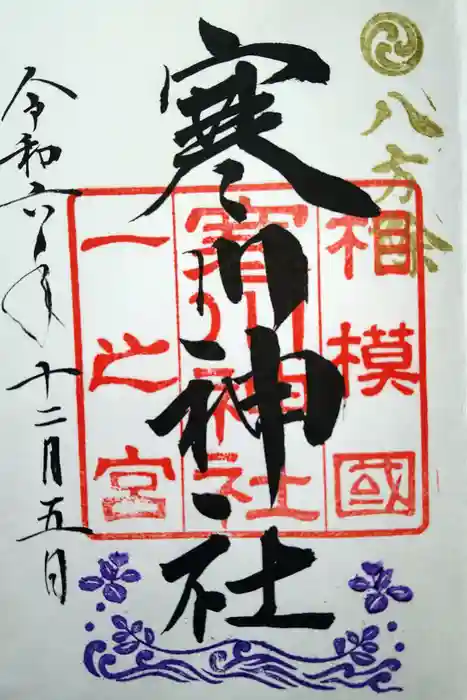 八方除
寒川神社
相模國
寒川神社
一之宮
令和六年十二月五日